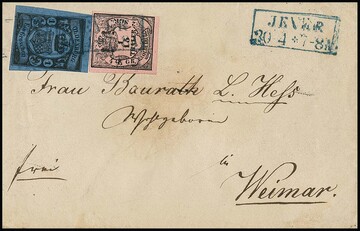 JEVER
30 4 * 7-8N
Frau Baurath L. Hess
Wohlgeboren
frei
in
Weimar.